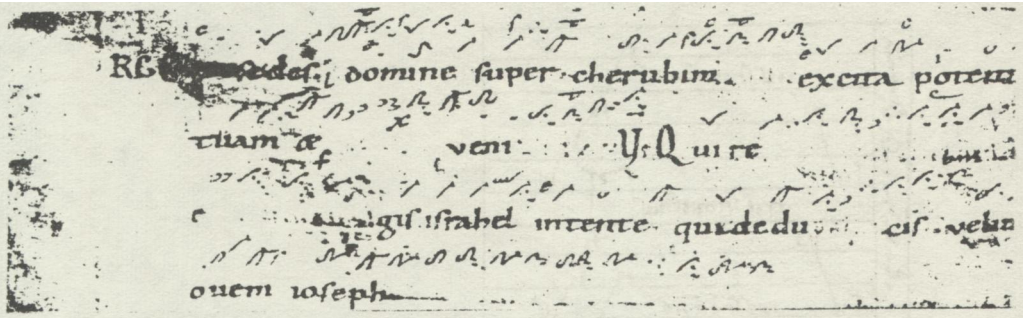 sedes domine super cherubim excita potenti
tuam & veni ℣ Qui re
gis israhel intente qui dedu cis velut
ouem ioseph